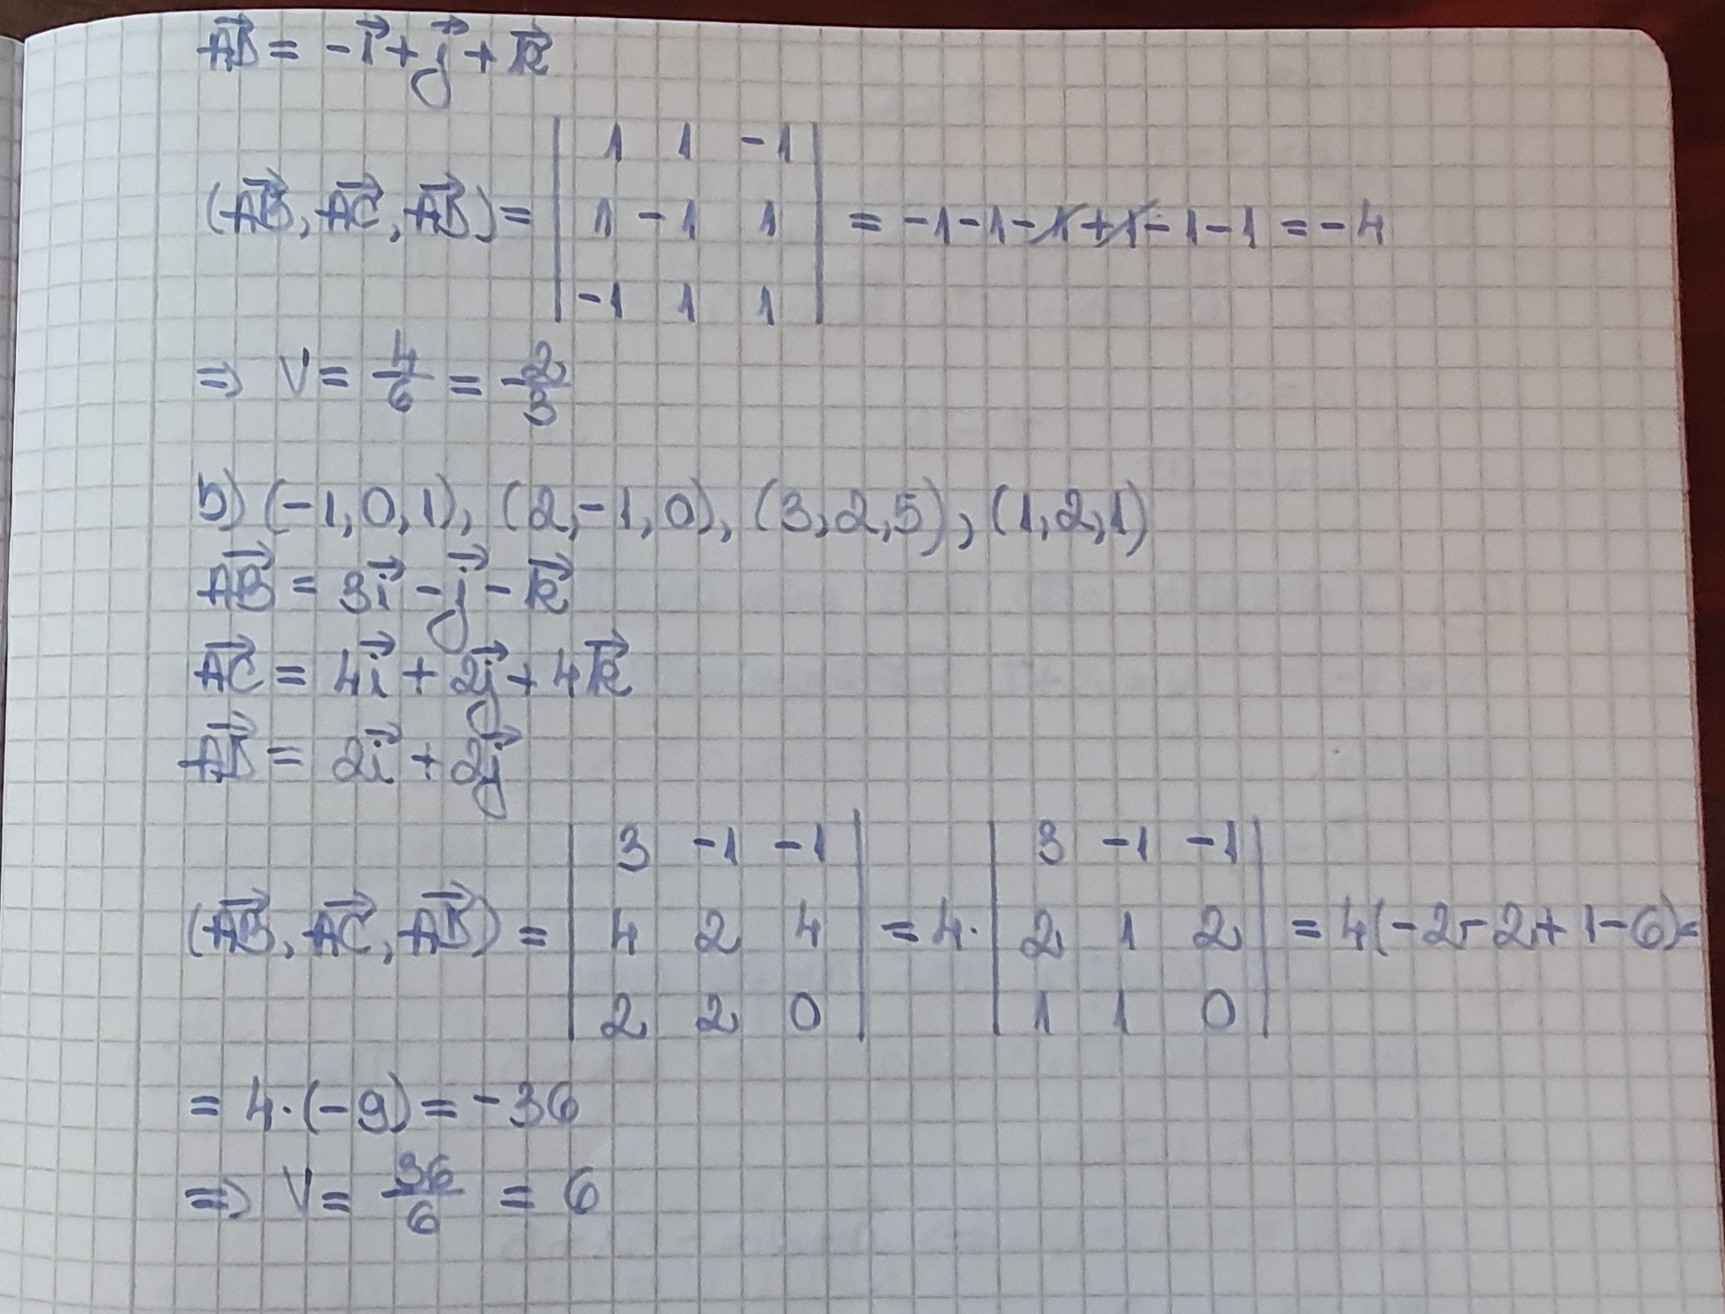 $\vec{AD} = -\vec{i} + \vec{j} + \vec{k}$
$(\vec{AB}, \vec{AC}, \vec{AD}) = \begin{vmatrix} 1 & 1 & -1 \\ 1 & -1 & 1 \\ -1 & 1 & 1 \end{vmatrix} = -1-1-\cancel{1}+\cancel{1}-1-1 = -4$
$\Rightarrow V = \frac{4}{6} = \frac{2}{3}$
b) (-1,0,1), (2,-1,0), (3,2,5), (1,2,1)
$\vec{AB} = 3\vec{i} - \vec{j} - \vec{k}$
$\vec{AC} = 4\vec{i} + 2\vec{j} + 4\vec{k}$
$\vec{AD} = 2\vec{i} + 2\vec{j}$
$(\vec{AB}, \vec{AC}, \vec{AD}) = \begin{vmatrix} 3 & -1 & -1 \\ 4 & 2 & 4 \\ 2 & 2 & 0 \end{vmatrix} = 4 \cdot \begin{vmatrix} 3 & -1 & -1 \\ 2 & 1 & 2 \\ 1 & 1 & 0 \end{vmatrix} = 4(-2-2+1-6) =$
$= 4 \cdot (-9) = -36$
$\Rightarrow V = \frac{36}{6} = 6$